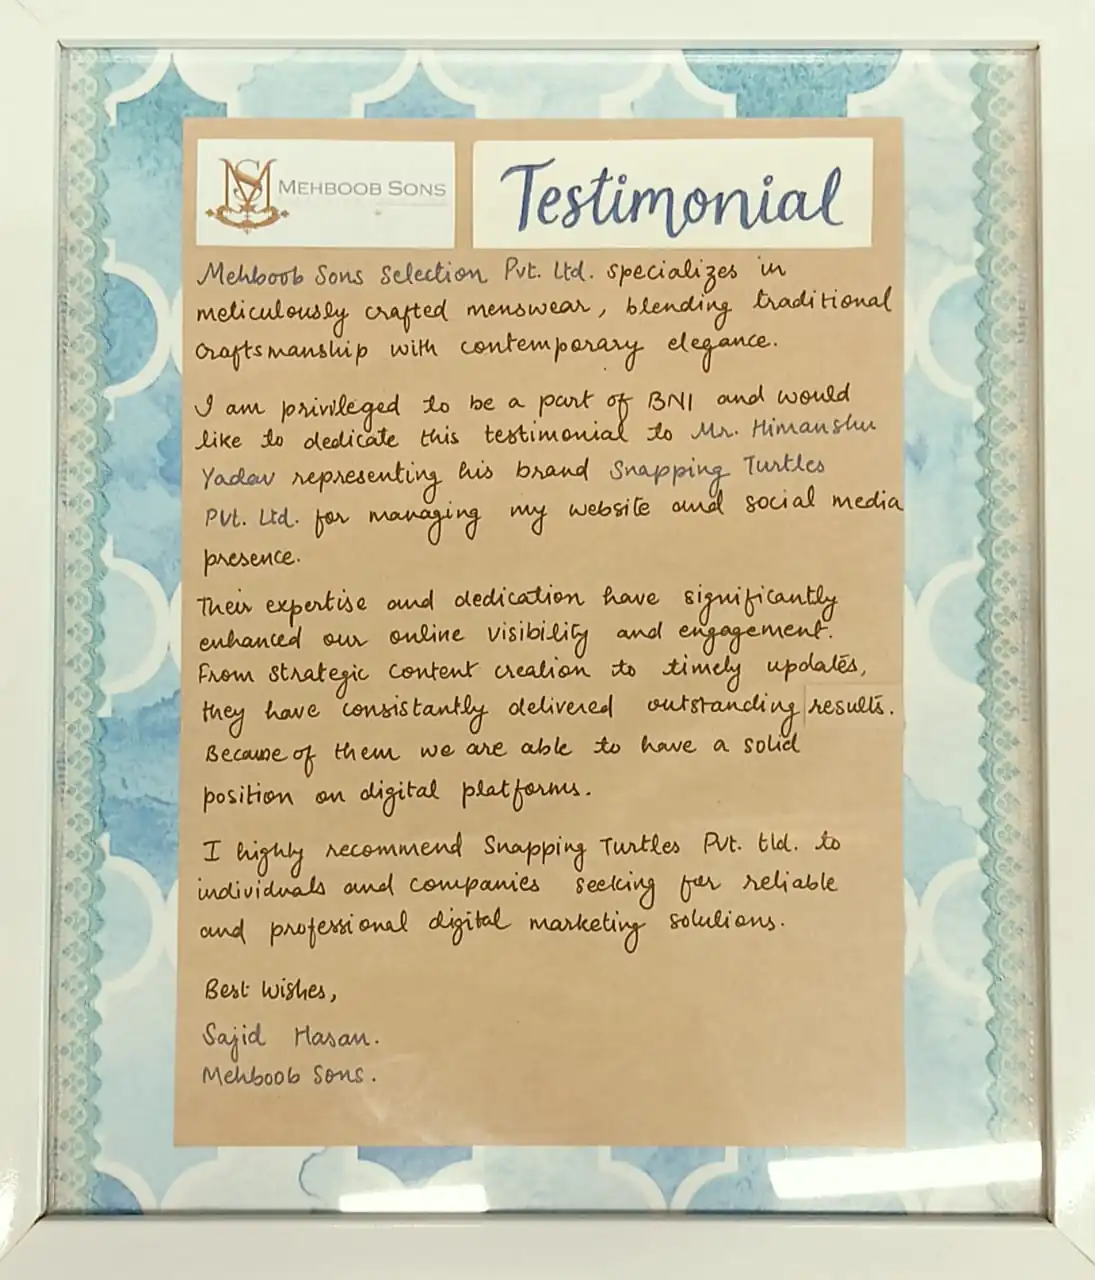 MEHBOOB SONS
Testimonial
Mehboob Sons Selection Pvt. Ltd. specializes in
meticulously crafted menswear, blending traditional
craftsmanship with contemporary elegance.
I am privileged to be a part of BNI and would
like to dedicate this testimonial to Mr. Himanshu
Yadav representing his brand Snapping Turtles
Pvt. Ltd. for managing my website and social media
presence.
Their expertise and dedication have significantly
enhanced our online visibility and engagement.
From strategic content creation to timely updates,
they have consistantly delivered outstanding results.
Because of them we are able to have a solid
position on digital platforms.
I highly recommend Snapping Turtles Pvt. Ltd. to
individuals and companies seeking for reliable
and professional digital marketing solutions.
Best Wishes,
Sajid Hasan.
Mehboob Sons.